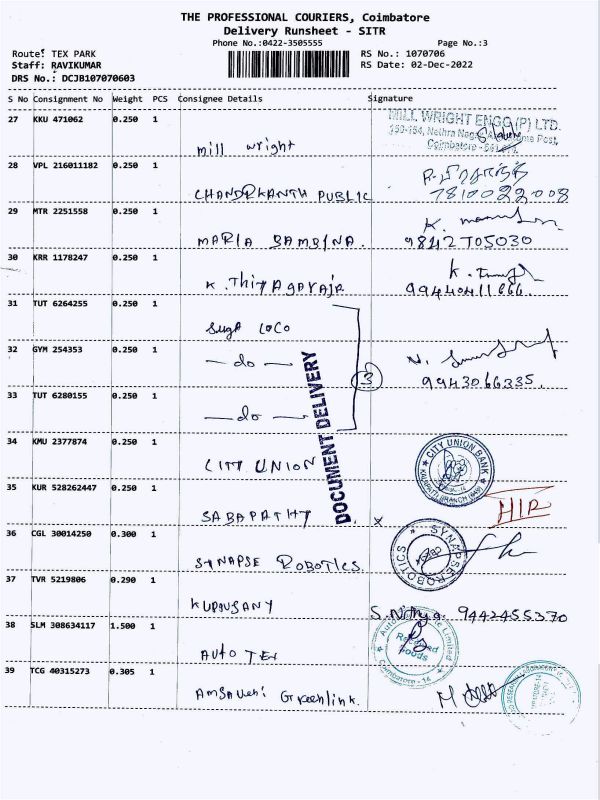 THE PROFESSIONAL COURIERS, Coimbatore
Delivery Runsheet - SITR
Phone No.:0422-3505555
Page No.:3
Route: TEX PARK
RS No.: 1070706
Staff: RAVIKUMAR
RS Date: 02-Dec-2022
DRS No.: DCJB107070603
S No Consignment No Weight PCS Consignee Details Signature
27 KKU 471062 0.250 1
MILL WRIGHT ENGG (P) LTD.
Coimbatore
mill wright
28 VPL 216011182 0.250 1
CHANDRKANTH PUBLIC
7810022008
29 MTR 2251558 0.250 1
MARIA BAMBINA.
9842705030
30 KRR 1178247 0.250 1
K. Thiyagaraja
31 TUT 6264255 0.250 1
32 GYM 254353 0.250 1
- do -
3
9943066335.
33 TUT 6280155 0.250 1
- do -
DOCUMENT DELIVERY
34 KMU 2377874 0.250 1
CITY UNION
CITY UNION BANK
35 KUR 528262447 0.250 1
SABAPATHY
x
36 CGL 30014250 0.300 1
SYNAPSE ROBOTICS
SYNAPSE ROBOTICS
37 TVR 5219806 0.290 1
9442455370
38 SLM 308634117 1.500 1
AUTO TEX
Limited
Received
Goods
Coimbatore - 14
39 TCG 40315273 0.305 1
Greenlink.